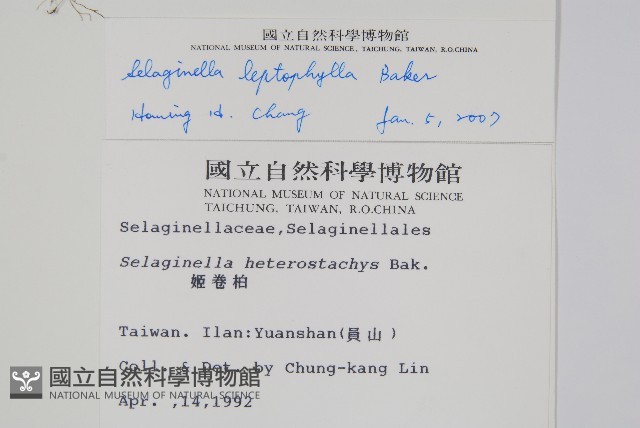 國立自然科學博物館
NATIONAL MUSEUM OF NATURAL SCIENCE, TAICHUNG, TAIWAN, R.O.CHINA
Selaginella leptophylla Baker
Haming H. Chang Jan. 5, 2007
國立自然科學博物館
NATIONAL MUSEUM OF NATURAL SCIENCE
TAICHUNG, TAIWAN, R.O.CHINA
Selaginellaceae,Selaginellales
Selaginella heterostachys Bak.
姬卷柏
Taiwan. Ilan:Yuanshan(員山)
Coll. & Det. by Chung-kang Lin
國立自然科學博物館
NATIONAL MUSEUM OF NATURAL SCIENCE
Apr. ,14,1992